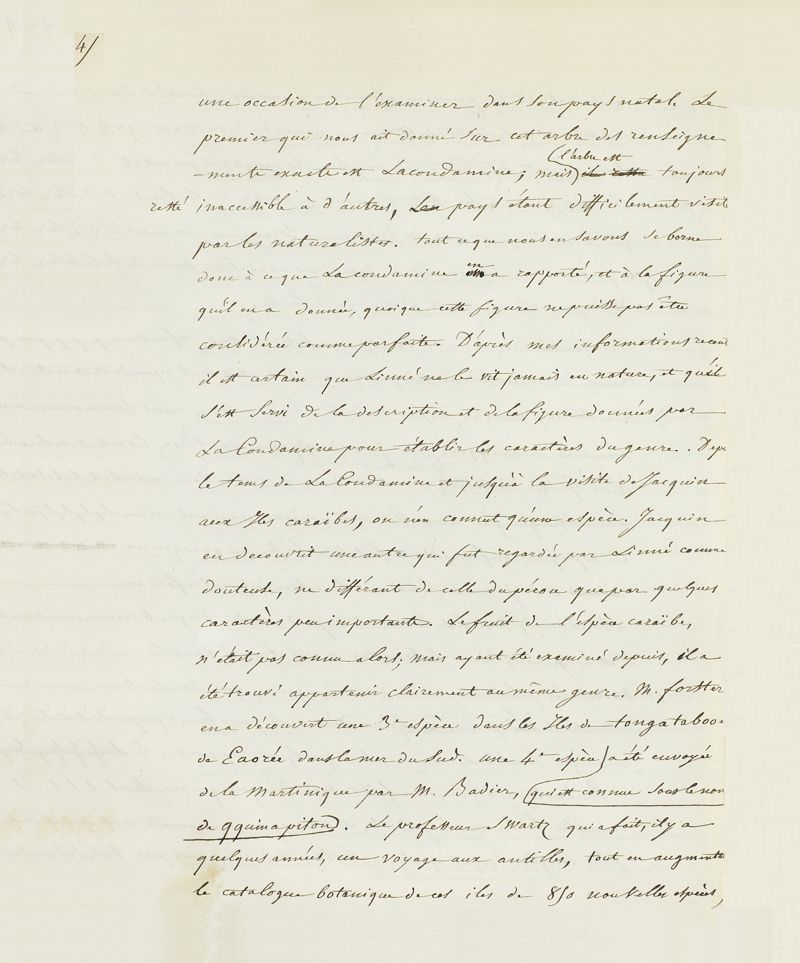 4/
une occasion de l'examiner dans son pays natal. Le
premier qui nous ait donné sur cet arbre des renseigne
-ments exacts est Lacondamine; mais l'arbre est il reste toujours
resté inaccessible à d'autres, Les pays étant difficilement visit
par les naturalistes. tout ce que nous en savons se borne
donc à ce que La condamine en a rapporté, et à la figure
qu'il en a donnée, quoique cette figure ne puisse pas être
considérée comme parfaite. D'après mes informations recen
il est certain que Linné ne le vit jamais en nature, et qu'il
s'est servi de la description et de la figure données par
La Condamine pour établir les caractères du genre. Depu
le tems de La Condamine et jusqu'à la visite de Jacquin
aux Iles caraïbes, on n'en connut qu'une espèce. Jacquin
en decouvrit une autre qui fut regardée par Linné comme
douteuse, ne différant de celle du pérou que par quelques
caractères peu importants. Le fruit de l'espèce caraïbe,
n'était pas connu alors; mais ayant été examiné depuis, il a
été trouvé appartenir clairement au même genre. M. forster
en a découvert une 3e espèce dans les Iles de tongataboo
de Eaorée dans la mer du Sud. une 4e espèce a été envoyée
de la Martinique par M. Badier, qui est connue sous le nom
de qquina piton. Le professeur Swartz qui a fait, il y a
quelques années, un voyage aux antilles, tout en augmenta
le catalogue botanique de ces iles de 850 nouvelles espèces,